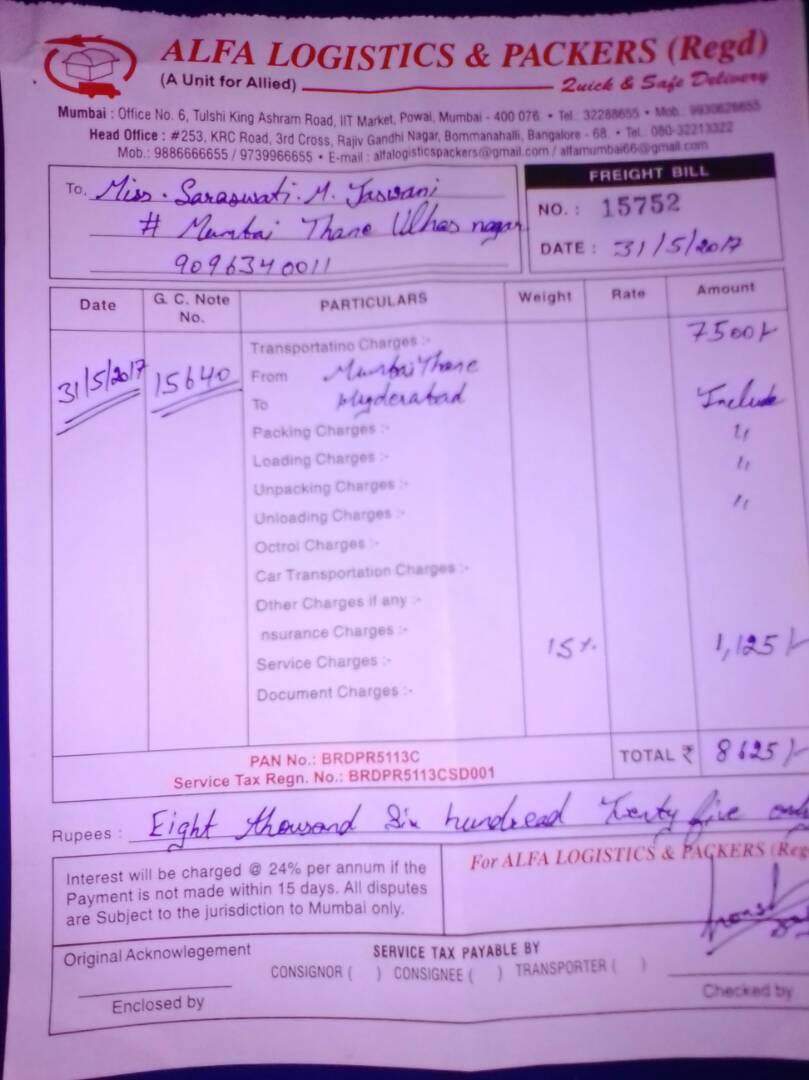 ALFA LOGISTICS & PACKERS (Regd)
(A Unit for Allied)
Quick & Safe Delivery
Mumbai : Office No. 6, Tulshi King Ashram Road, IIT Market, Powai, Mumbai - 400 076. • Tel. 32288655 • Mob.
Head Office : #253, KRC Road, 3rd Cross, Rajiv Gandhi Nagar, Bommanahalli, Bangalore - 68. • Tel. 080-32213322
Mob.: 9886666655 / 9739966655 • E-mail : alfalogisticspackers@gmail.com / alfamumbai66@gmail.com
To, Miss. Saraswati. M. Jaswani
# Mumbai Thane Ulhas nagar
9096340011
FREIGHT BILL
NO. : 15752
DATE : 31/5/2017
Date G. C. Note No. PARTICULARS Weight Rate Amount
Transportatino Charges :- 7500/-
31/5/2017 15640 From Mumbai Thane
To Hyderabad Include
Packing Charges :- "
Loading Charges :- "
Unpacking Charges :- "
Unloading Charges :-
Octroi Charges :-
Car Transportation Charges :-
Other Charges if any :-
nsurance Charges :-
Service Charges :- 15% 1,125/-
Document Charges :-
PAN No.: BRDPR5113C
Service Tax Regn. No.: BRDPR5113CSD001
TOTAL ₹ 8625/-
Rupees : Eight thousand Six hundread Twenty five only
Interest will be charged @ 24% per annum if the
Payment is not made within 15 days. All disputes
are Subject to the jurisdiction to Mumbai only.
For ALFA LOGISTICS & PACKERS (Reg
Original Acknowlegement
SERVICE TAX PAYABLE BY
CONSIGNOR ( ) CONSIGNEE ( ) TRANSPORTER ( )
Enclosed by
Checked by